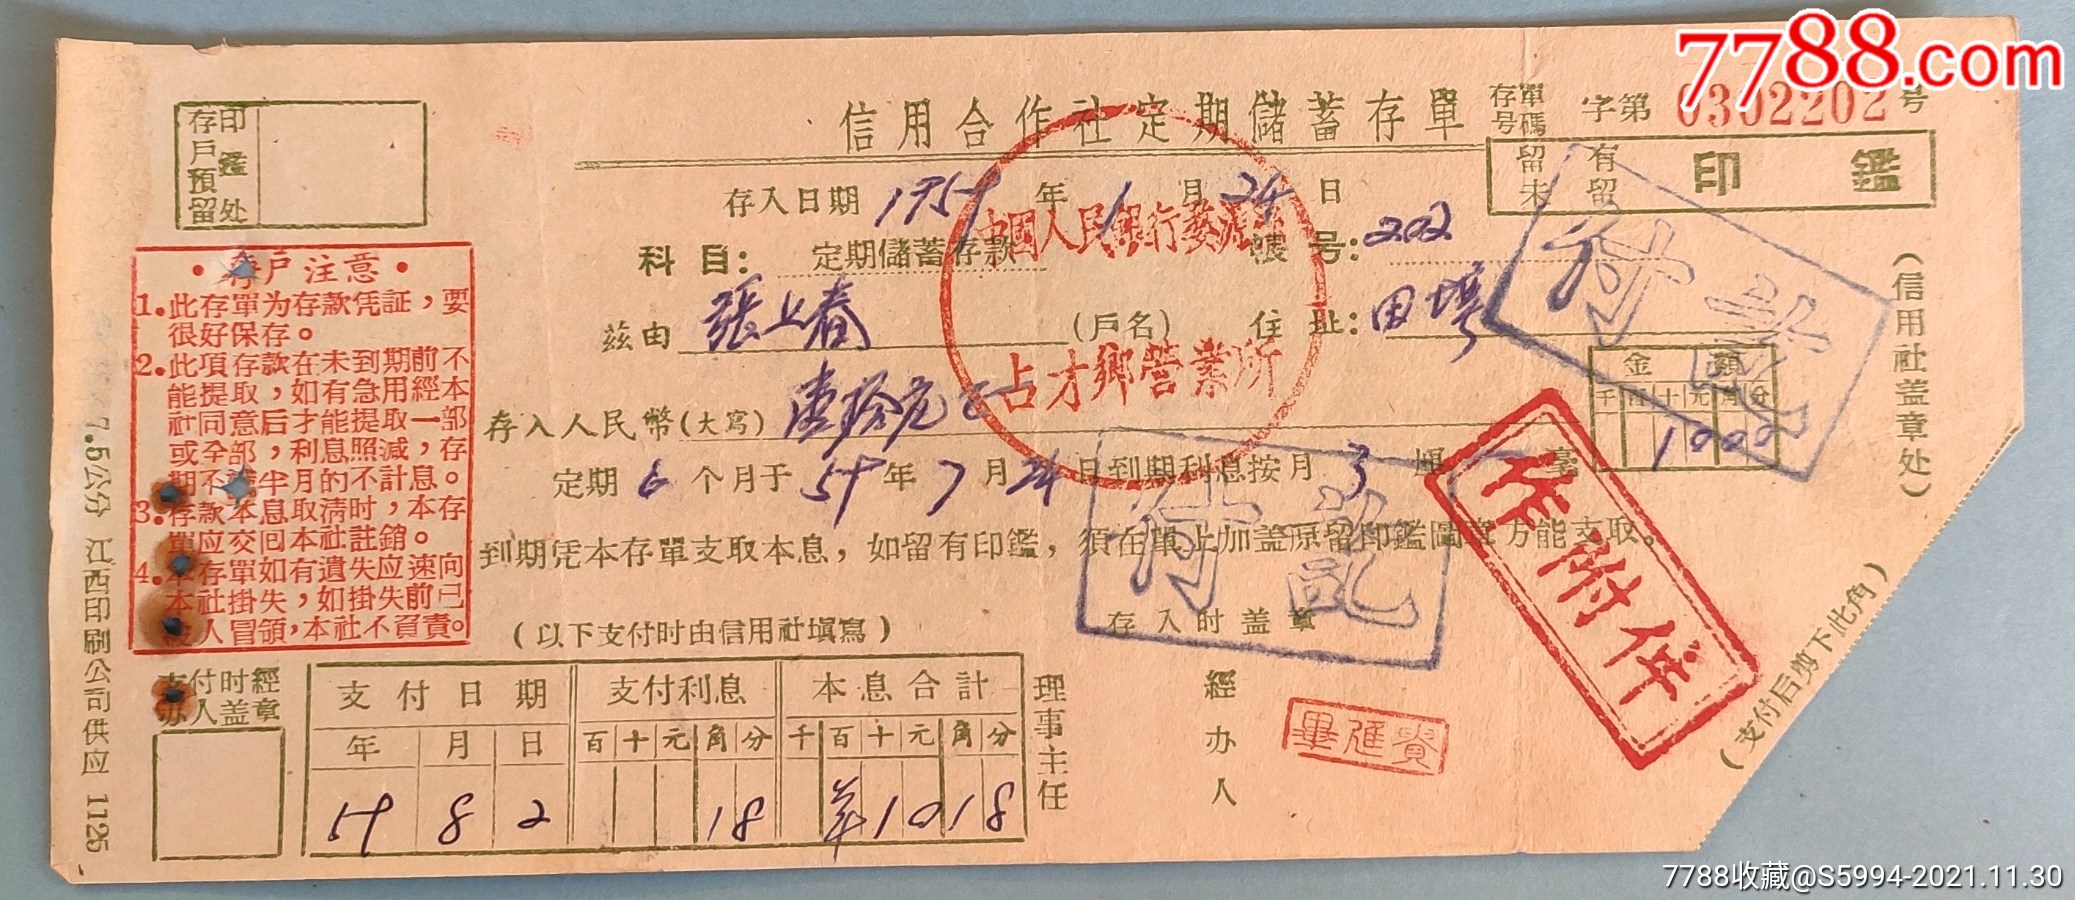 7788.com
信用合作社定期儲蓄存單
存單号碼 字第 0302202 号
存戶預留印鑑处
留有 未留 印鑑
存入日期 1959 年 1 月 24 日
科目：定期儲蓄存款 帳号：202
茲由 張上春 （戶名） 住址：田塝
中國人民銀行婺源
占才鄉营業所
存入人民幣（大寫）
金額
千百十元角分
1000
定期 6 个月于 59 年 7 月 24 日到期利息按月 3 厘 毫
到期凭本存單支取本息，如留有印鑑，須在單上加盖原留印鑑圖章方能支取。
付訖
付訖
作附件
存入时盖章
（信用社盖章处）
（支付后剪下此角）
•存戶注意•
1.此存單为存款凭証，要很好保存。
2.此項存款在未到期前不能提取，如有急用經本社同意后才能提取一部或全部，利息照減，存期不滿半月的不計息。
3.存款本息取淸时，本存單应交回本社註銷。
4.本存單如有遺失应速向本社掛失，如掛失前已被人冒領，本社不負責。
（以下支付时由信用社填寫）
支付时經办人盖章
支付日期 支付利息 本息合計
年 月 日 百十元角分 千百十元角分
59 8 2 18 1018
理事主任
經办人
畢進賢
7.5公分 江西印刷公司供应 1125
7788收藏@S5994-2021.11.30